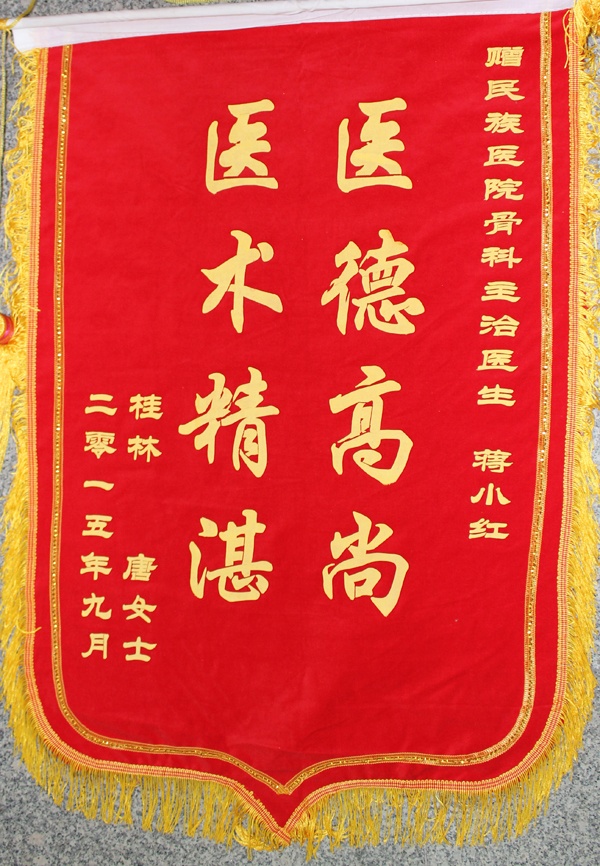 赠民族医院骨科主治医生 蒋小红
医德高尚
医术精湛
桂林 唐女士
二零一五年九月